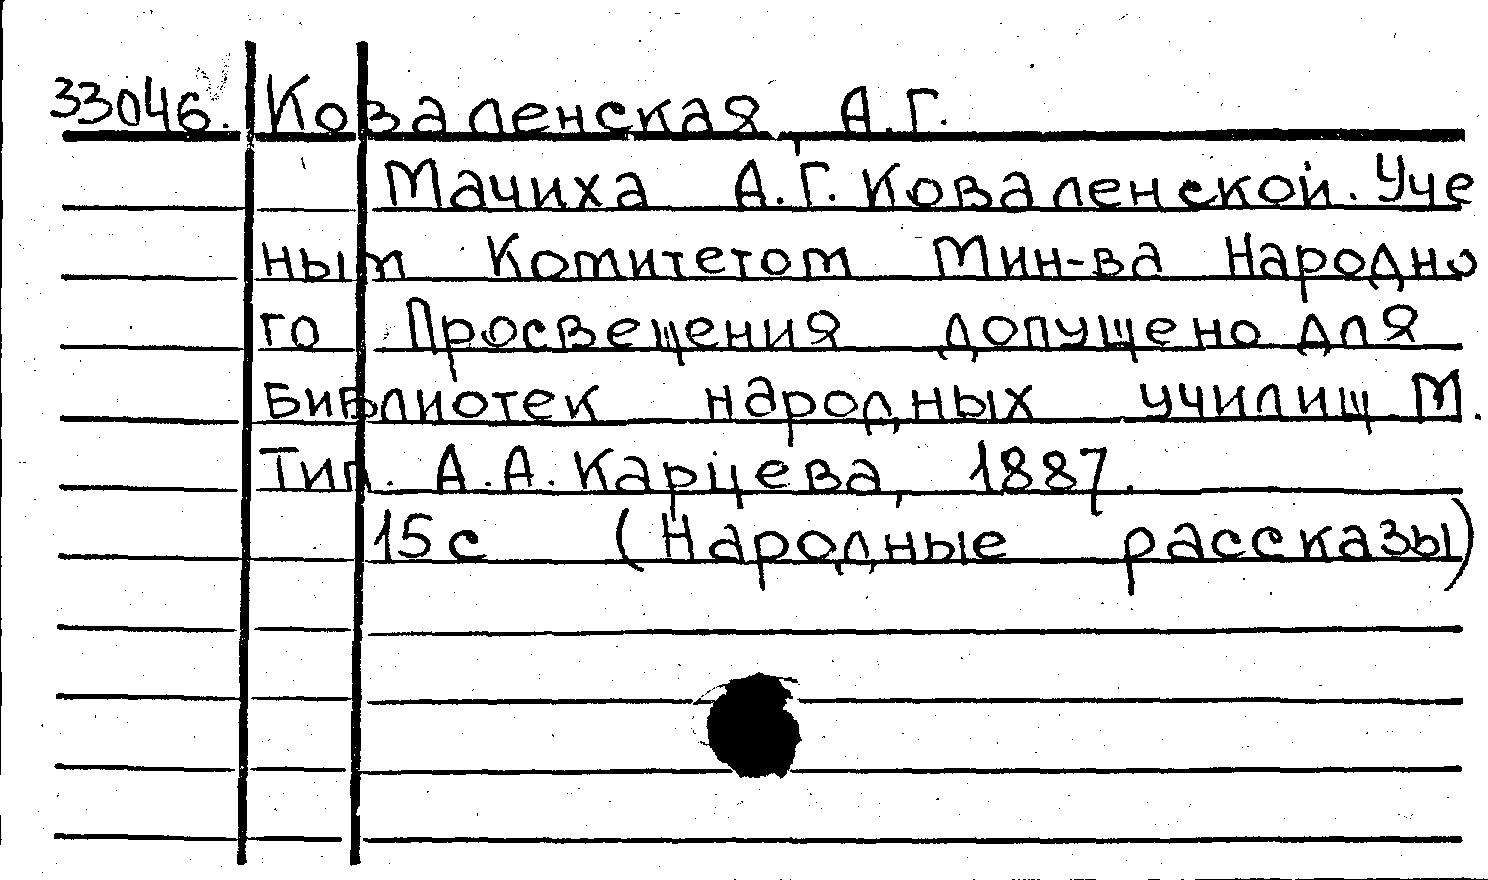 33046. Коваленская, А.Г.
Мачиха А.Г. Коваленской. Уче
ным Комитетом Мин-ва Народно
го Просвещения допущено для
Библиотек народных училищ М.
Тип. А.А. Карцева, 1887.
15с (Народные рассказы)